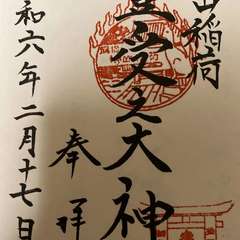 山稲荷
受之大神
奉拝
和六年二月十七日